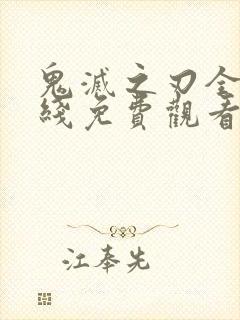 鬼滅之刃全
綫免費觀看
江奉先